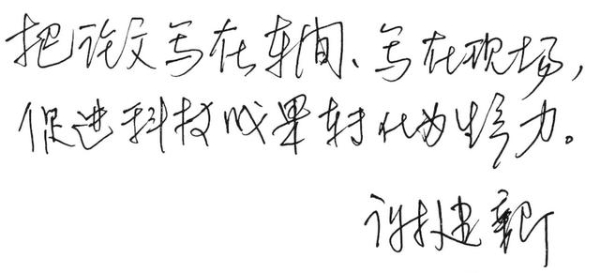 把论文写在车间、写在现场,
促进科技成果转化为生产力。
谢建新